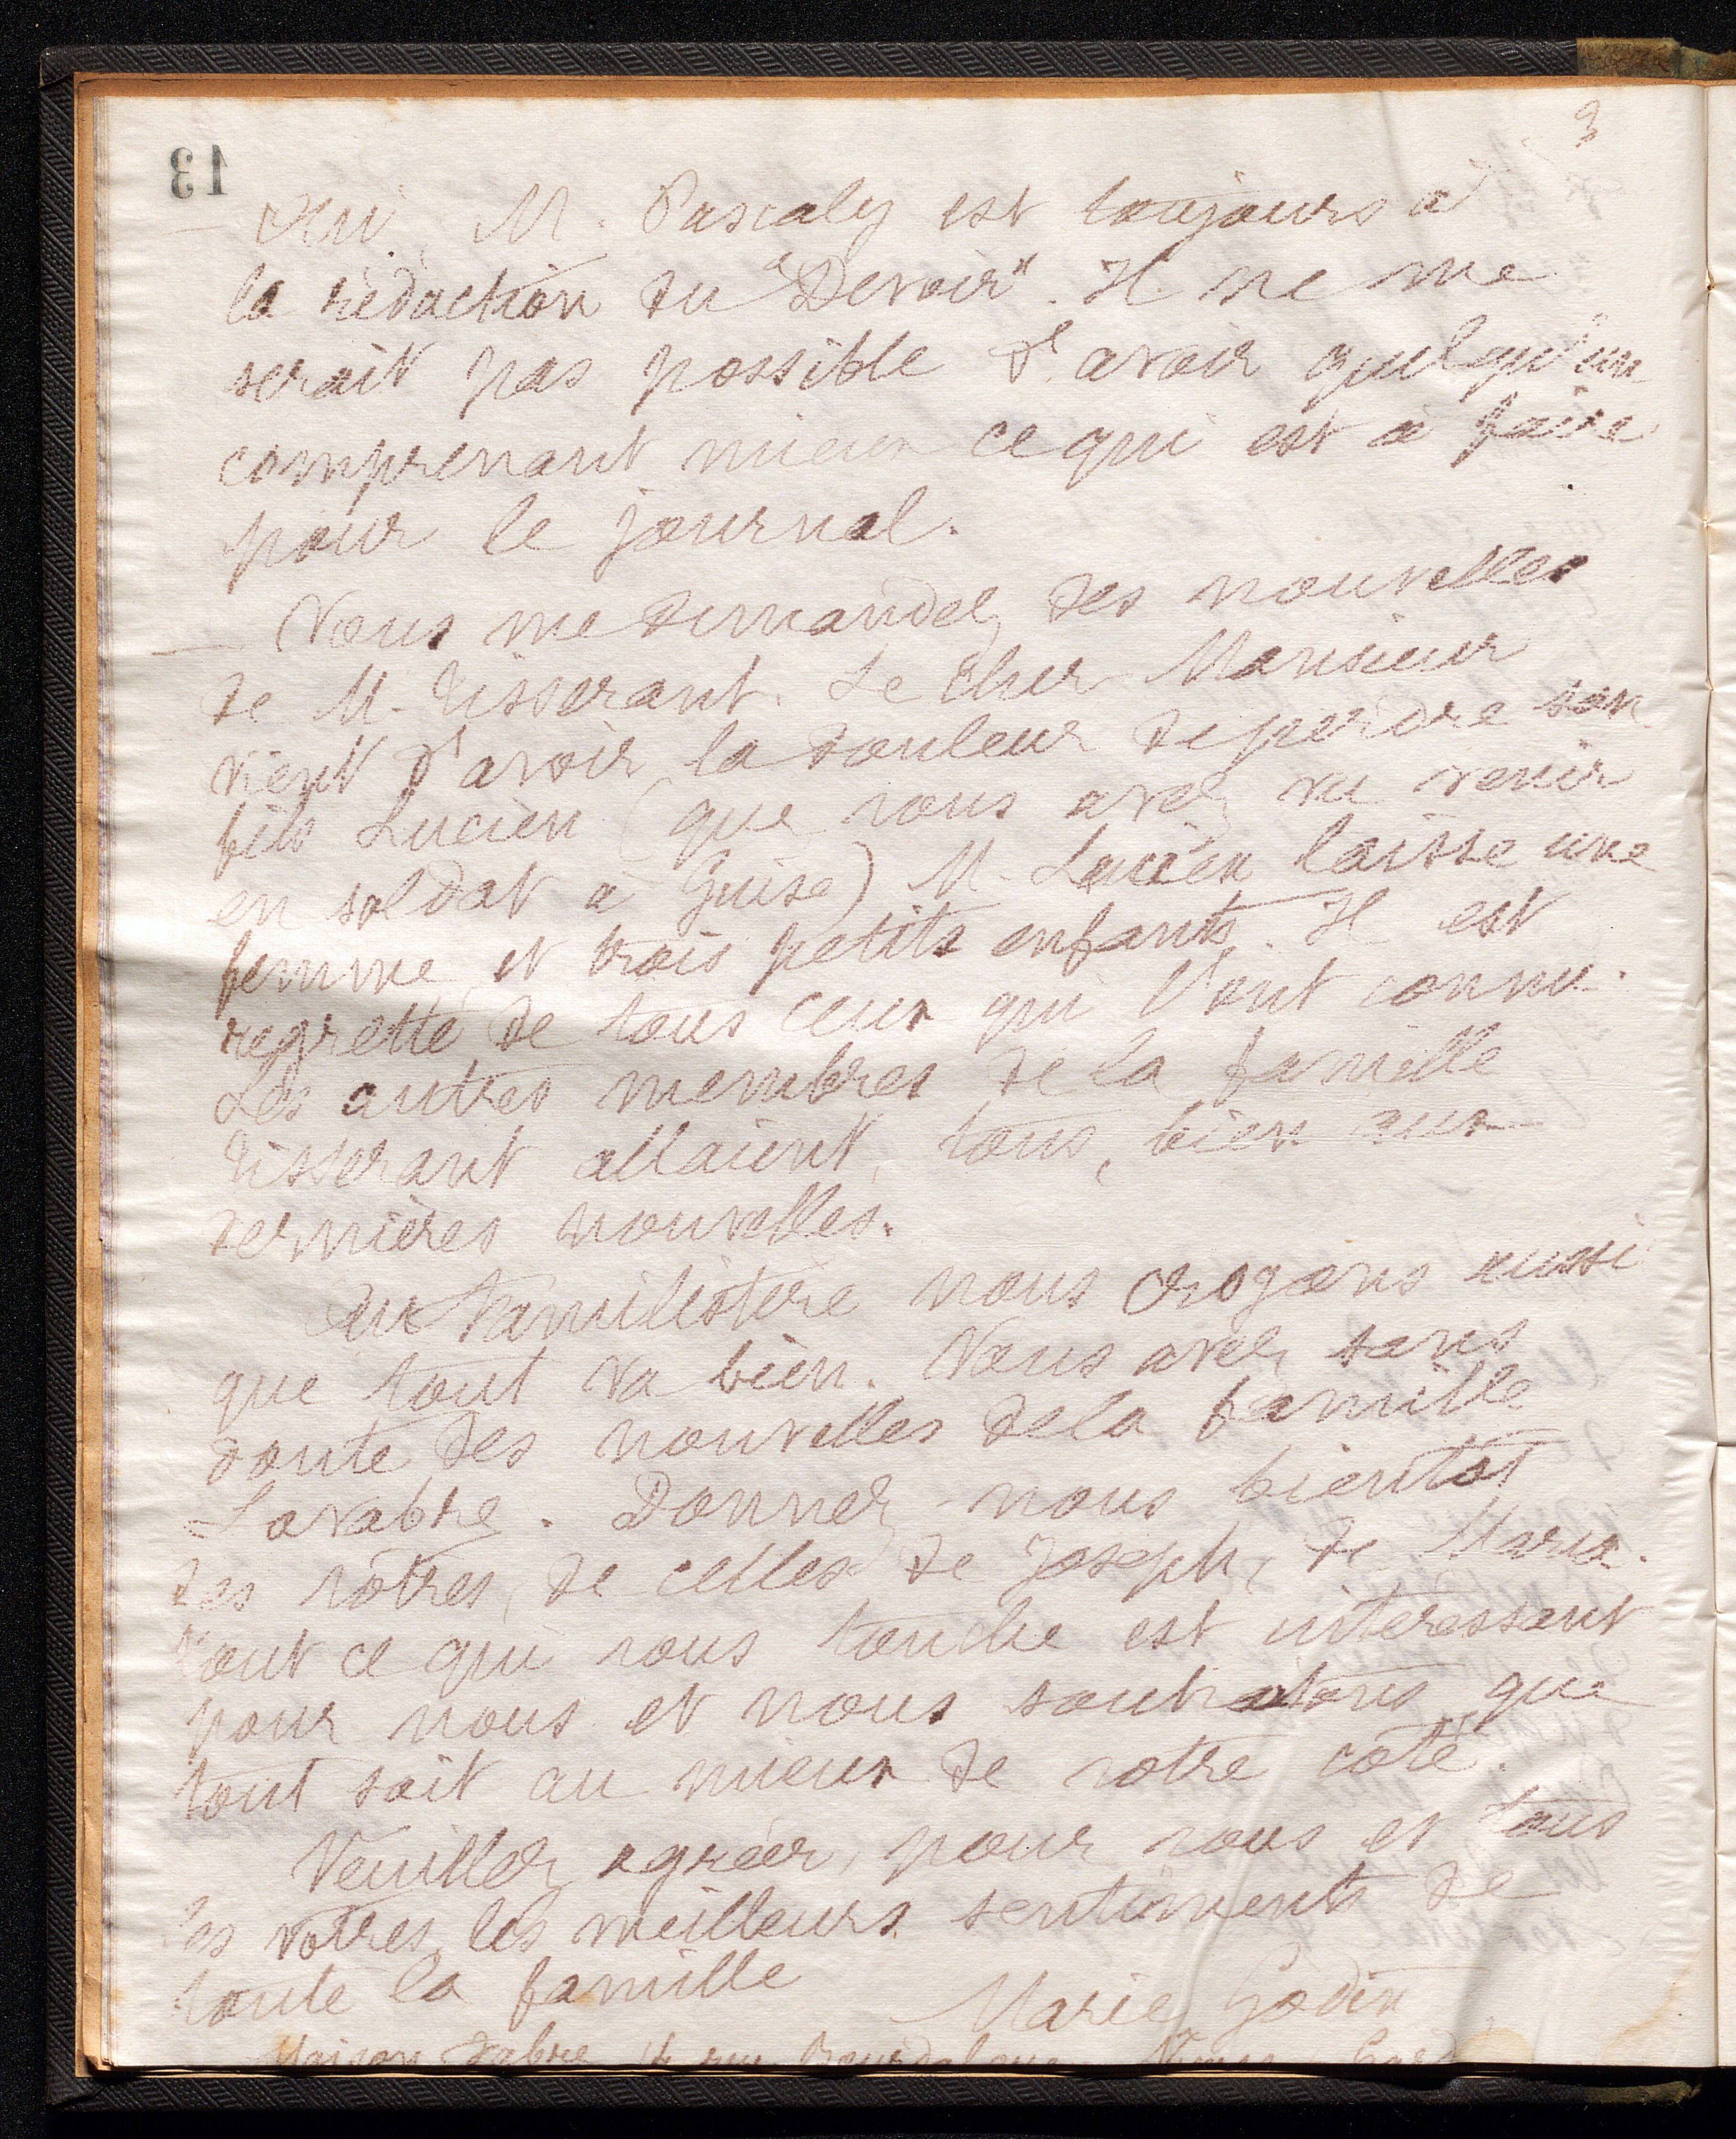 3
13
— Oui, M. Pascaly est toujours à
la rédaction du "Devoir". Il ne me
serait pas possible d'avoir quelqu'un
comprenant mieux ce qui est à faire
pour le journal.
— Vous me demandez des nouvelles
de M. Tisserant. Le cher Monsieur
vient d'avoir la douleur de perdre son
fils Lucien (que vous avez vu venir
en soldat à Guise) M. Lucien laisse une
femme et trois petits enfants. Il est
regretté de tous ceux qui l'ont connu.
Les autres membres de la famille
Tisserant allaient, tous, bien aux
dernières nouvelles.
Au Familistère nous croyons aussi
que tout va bien. Vous avez sans
doute des nouvelles de la famille
Lavabre. Donnez-nous bientôt
des vôtres, de celles de Joseph, de Marie.
Tout ce qui vous touche est intéressant
pour nous et nous souhaitons que
tout soit au mieux de votre côté.
Veuillez agréer, pour vous et tous
les vôtres, les meilleurs sentiments de
toute la famille
Marie Godin
Maison Fabre, rue Bourdaloue, Nîmes, Gard